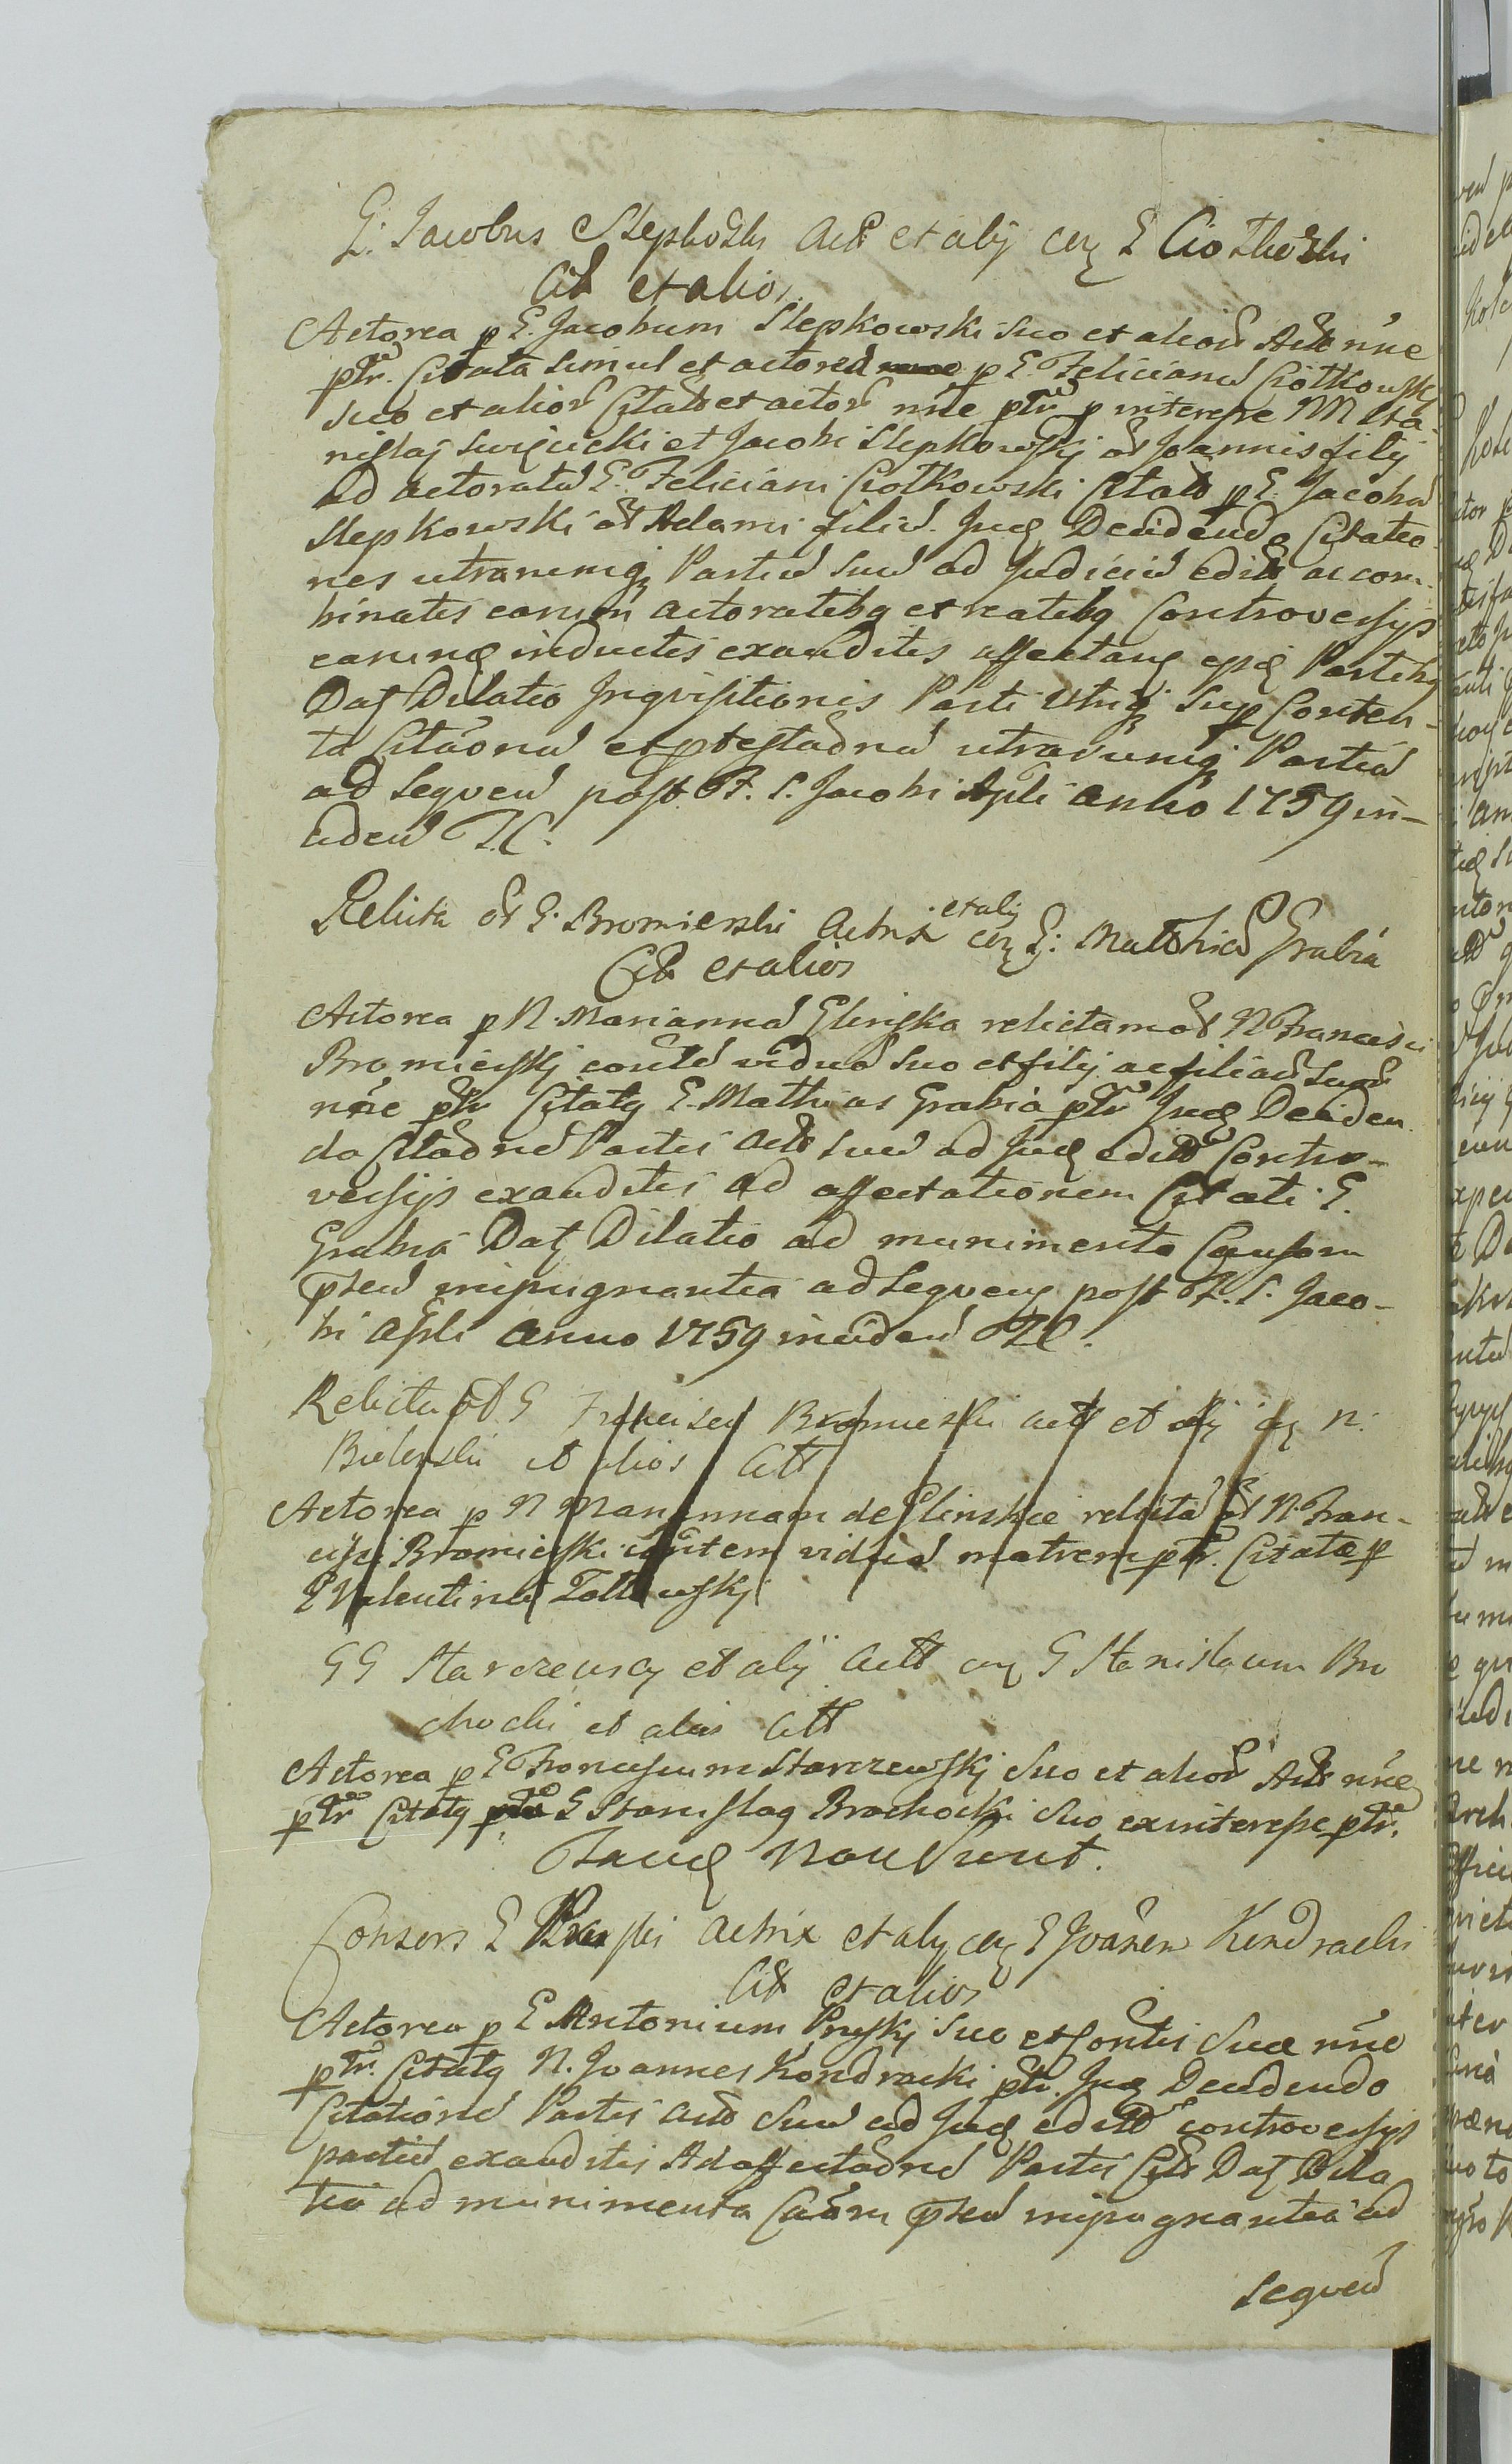 G. Jacobus Slepkowski Act et alij cum G Ciołkowski
Cit et alios.
Actorea p G. Jacobum Slepkowski suo et alior Act nne
ptr. Citata simul et actorea p G. Felicianu Ciołkowski
suo et alior Citat et actor nne ptr p interesse NN Sta-
nislai Swięcicki et Jacobi Slepkowskj od Joannis filij
ad actoratu G. Feliciani Ciołkowski Citato p G. Jacobu
Slepkowski od Adami filiu. Jud Decidendo Citatio-
nes utrarumq Partiu suu ad Judiciu edit ac com-
binatis earum actoratibq et reatibq Controversijs
earumq inductis exauditis affectanq ipsis Partibq
Datj Dilatio Inqvisitionis Parti utriq sup Conten-
ta Citaonu et ptestaonu utrarumq Partiu
ad Seqven post F. S. Jacobi Apli Anno 1759 in-
ciden T.C.
Relicta od G. Bromierski Actrix et alij cum G: Mathia Grabia
Cit et alios
Actorea p N. Marianna Glinska relictam od N Francisci
Bromierskj coniuge vidua suo et filij ac filiar suar
nne ptr Citatq G. Mathias Grabia ptr Jud Deciden-
do Citaone Partis Act suu ad Jud edit Contro-
versijs exauditis ad affectationem Citati G.
Grabia Datj Dilatio ad munimenta Causam
psen impugnantia ad Seqven post F. S. Jaco-
bi Apli Anno 1759 inciden T.C.
Relicta od G Francisci Bromierski act et alij cum N.
Bielinski et alios Citt
Actorea p N Mariannam de Glinskie relicta od N. Fran-
cisci Bromierski vidua matrem ptr. Citata p
G Valentinu
GG Starczewscy et alij Actt cum G Stanislaum Bro
chocki et alios Citt
Actorea p G Franciscum Starczewskj suo et alior Act nne
ptr Citatq G Stanislaq Brochocki suo ex interesse ptr.
Fang non Sunt.
Consors G Pruski Actrix et alij cum G Joanem Kondracki
Cit et alios
Actorea p G Antonium Pruskj suo et Contis suae nne
ptr. Citatq N. Joannes Kondracki ptr. Jud Decidendo
Citatione Partis act suu ad Jud edit controversijs
partiu exauditis Ad affectaone Partis Cit Datj Dila
tio ad munimenta Causm psen impugnantia ad
Seqven